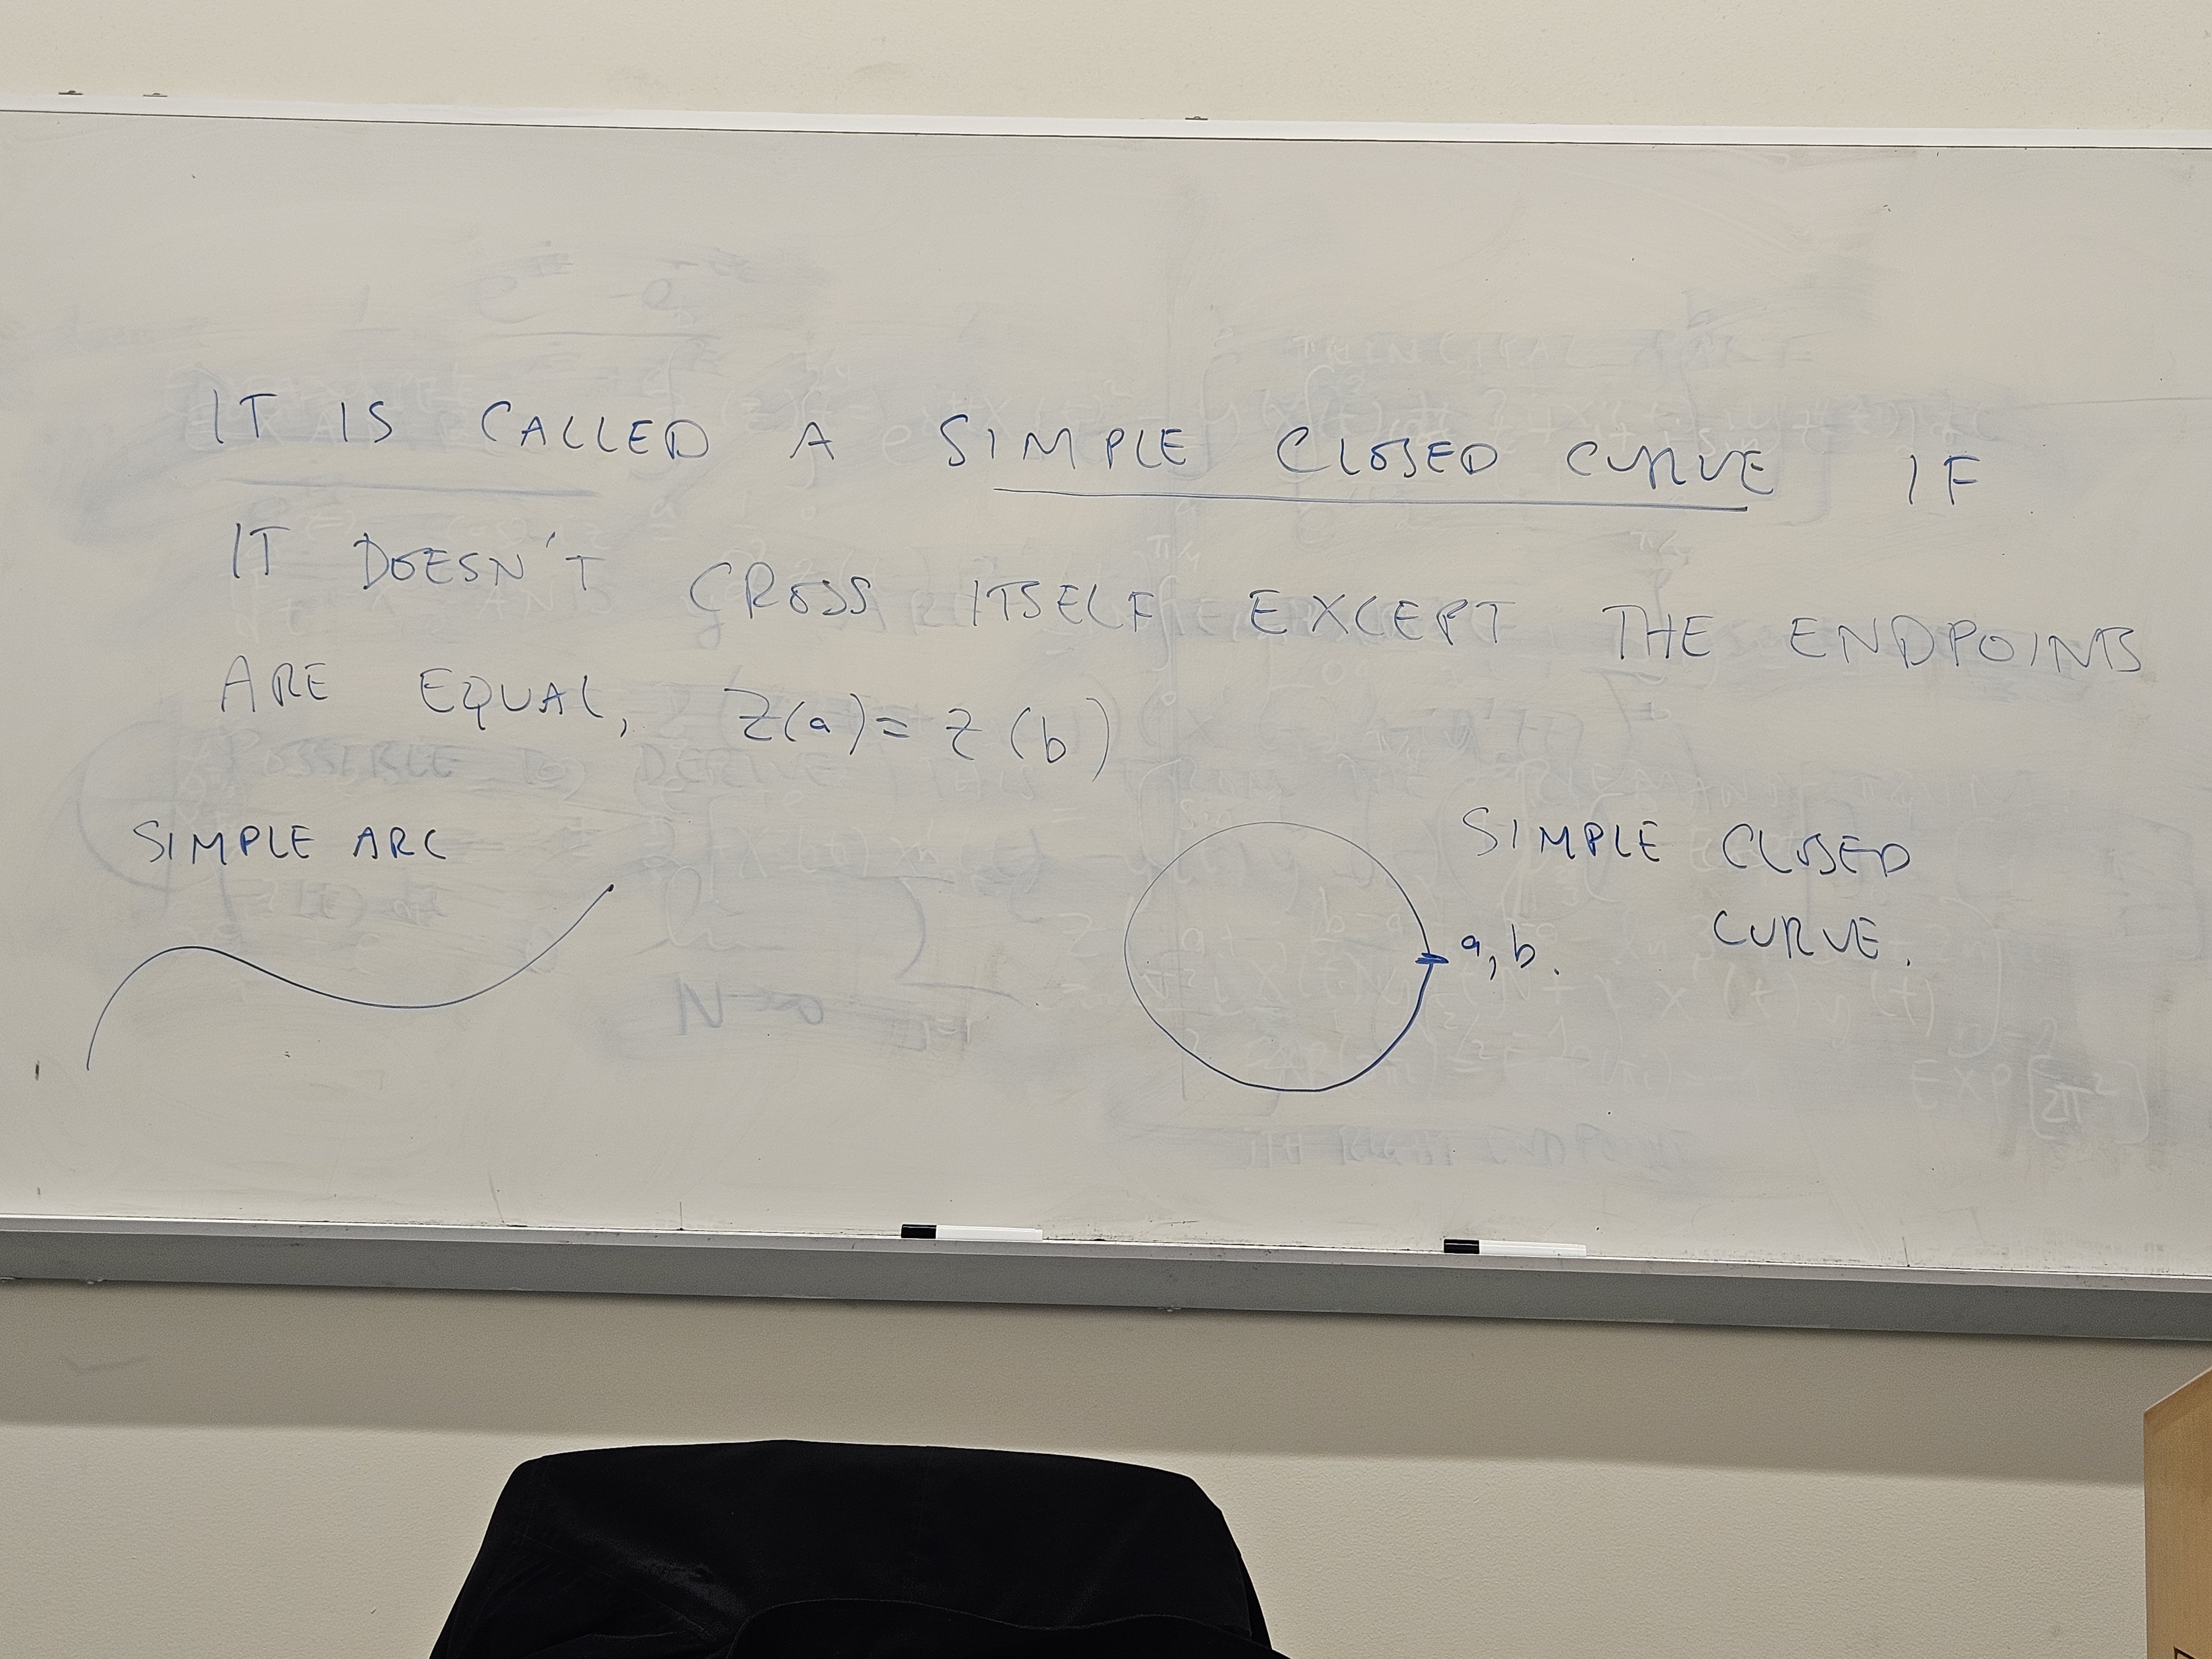 IT IS CALLED A SIMPLE CLOSED CURVE IF
IT DOESN'T CROSS ITSELF EXCEPT THE ENDPOINTS
ARE EQUAL, z(a) = z(b)
SIMPLE ARC
SIMPLE CLOSED
CURVE.
a, b.